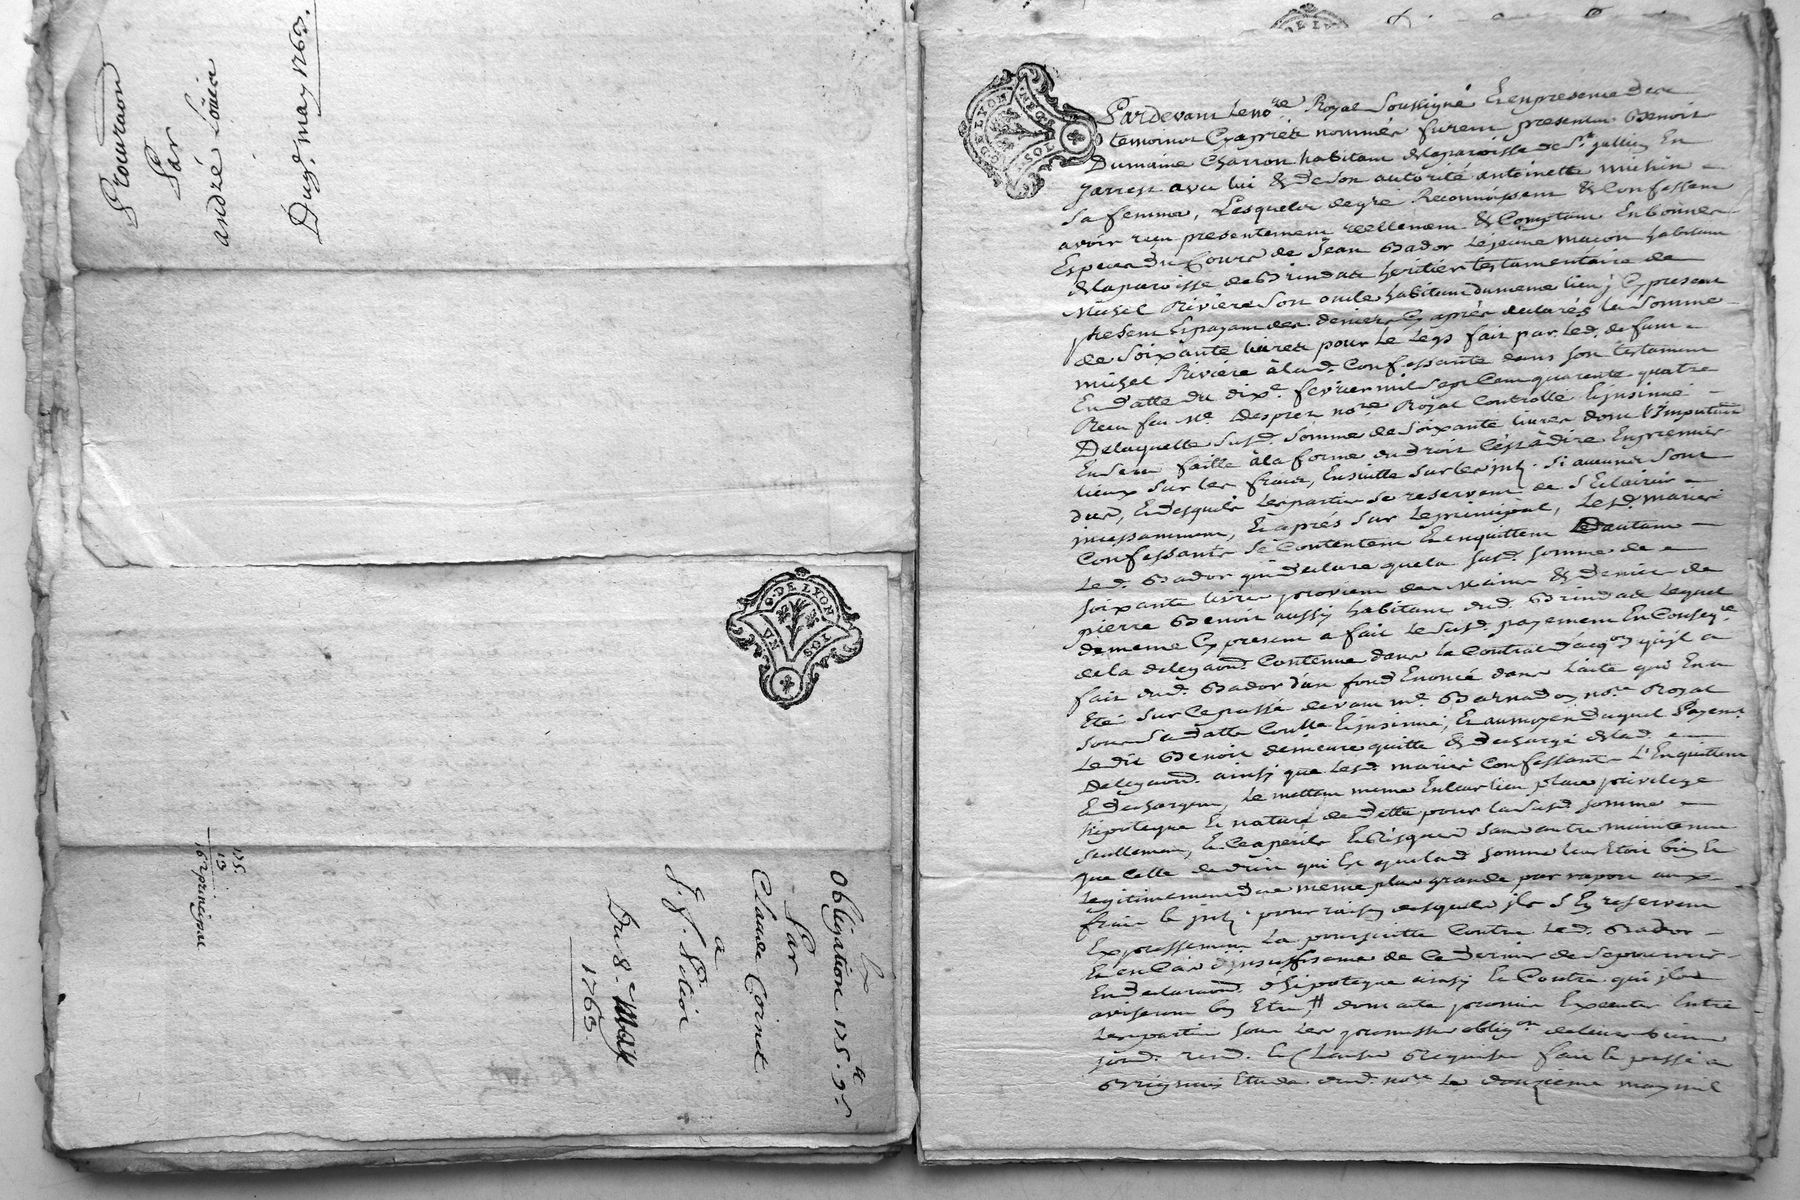 Procuraon
Par
andré Loüier
Du 9e. may 1763.
G. DE LYON
UN SOL
Obligation 175.# 9.s
Par
Claude Cornet
a
Du 8. May
1763.
175
13
162 principal
G. DE LYON
Pardevant le no.re Royal soussigné et en presence des
temoins cy après nommés furent presents Benoit
Dumaine Charron habitant de la paroisse de St. jullien en
Jarrest avec lui & de son autorité antoinette michin
sa femme, Lesquels de gré Reconnoissent & Confessent
avoir reçu presentement reellement & Comptant en bonnes
Especes du Cours de Jean Bador le jeune macon habitant
de la paroisse de Brindas heritier testamentaire de
Michel Riviere son oncle habitant du meme lieu cy present
present Et payant des deniers cy après declarés la somme
de soixante livres pour le legs fait par led. defunt
michel Riviere à lad. Confessante dans son testament
En datte du dix.e fevrier mil sept Cent quarante quatre
Reçu feu Me. Desprez no.re Royal Controllé Et insinué
De laquelle susd. somme de soixante livres dont l'Imputaon
En sera faitte à la forme du droit C'est à dire En premier
lieux sur les fraix, Ensuitte sur les int. si aucuns sont
dus, Et desquels les parties se reservent de s'Eclaircir
incessamment, Et après sur le principal, Lesd. mariés
Confessants se Contentent Et en quittent D'autant
Led. Bador qui declare que la susd. somme de
soixante livres provient des Mains & deniers de
pierre Benoit aussy habitant dud. Brindas lequel
de meme Cy present a fait le susd. payement En Conseq.ce
de la delegaond. Contenue dans le Contrat d'acq.on qu'il a
fait dud. Bador d'un fond Enoncé dans l'acte qui En a
Eté sur Ce passé devant Me. Barnadon no.re Royal
sous sa datte Conllé Et insinué, Et au moyen duquel Payem.t
Le dit Benoit demeure quitte & dechargé de lad.
Delegaond. ainsy que lesd. mariés Confessants L'En quittent
Et dechargent, Le mettant meme En leur lieu place privilege
hipoteque Et nature de dette pour la susd. somme
seullement, Et Ce a perils Et Risques sans autre maintenue
que Celle de droit qui Est que lad. somme leur Etoit bien Et
Legitimement due meme plus grande par raport aux
fraix Et int. pour raison desquels ils s'En reservent
Expressement la poursuitte Contre led. Bador
Et en Cas d'insuffisance de Ce dernier de se pourvoir
En declaraond. d'hipoteque ainsy Et Contre qui ils
aviseront bon Etre # dont acte promis Executer Entre
Les parties sous les promesses oblig.on de leurs biens
soum. renon. Et Clauses Requises fait Et passé a
Brignais Etude dud. no.re le douzieme may mil